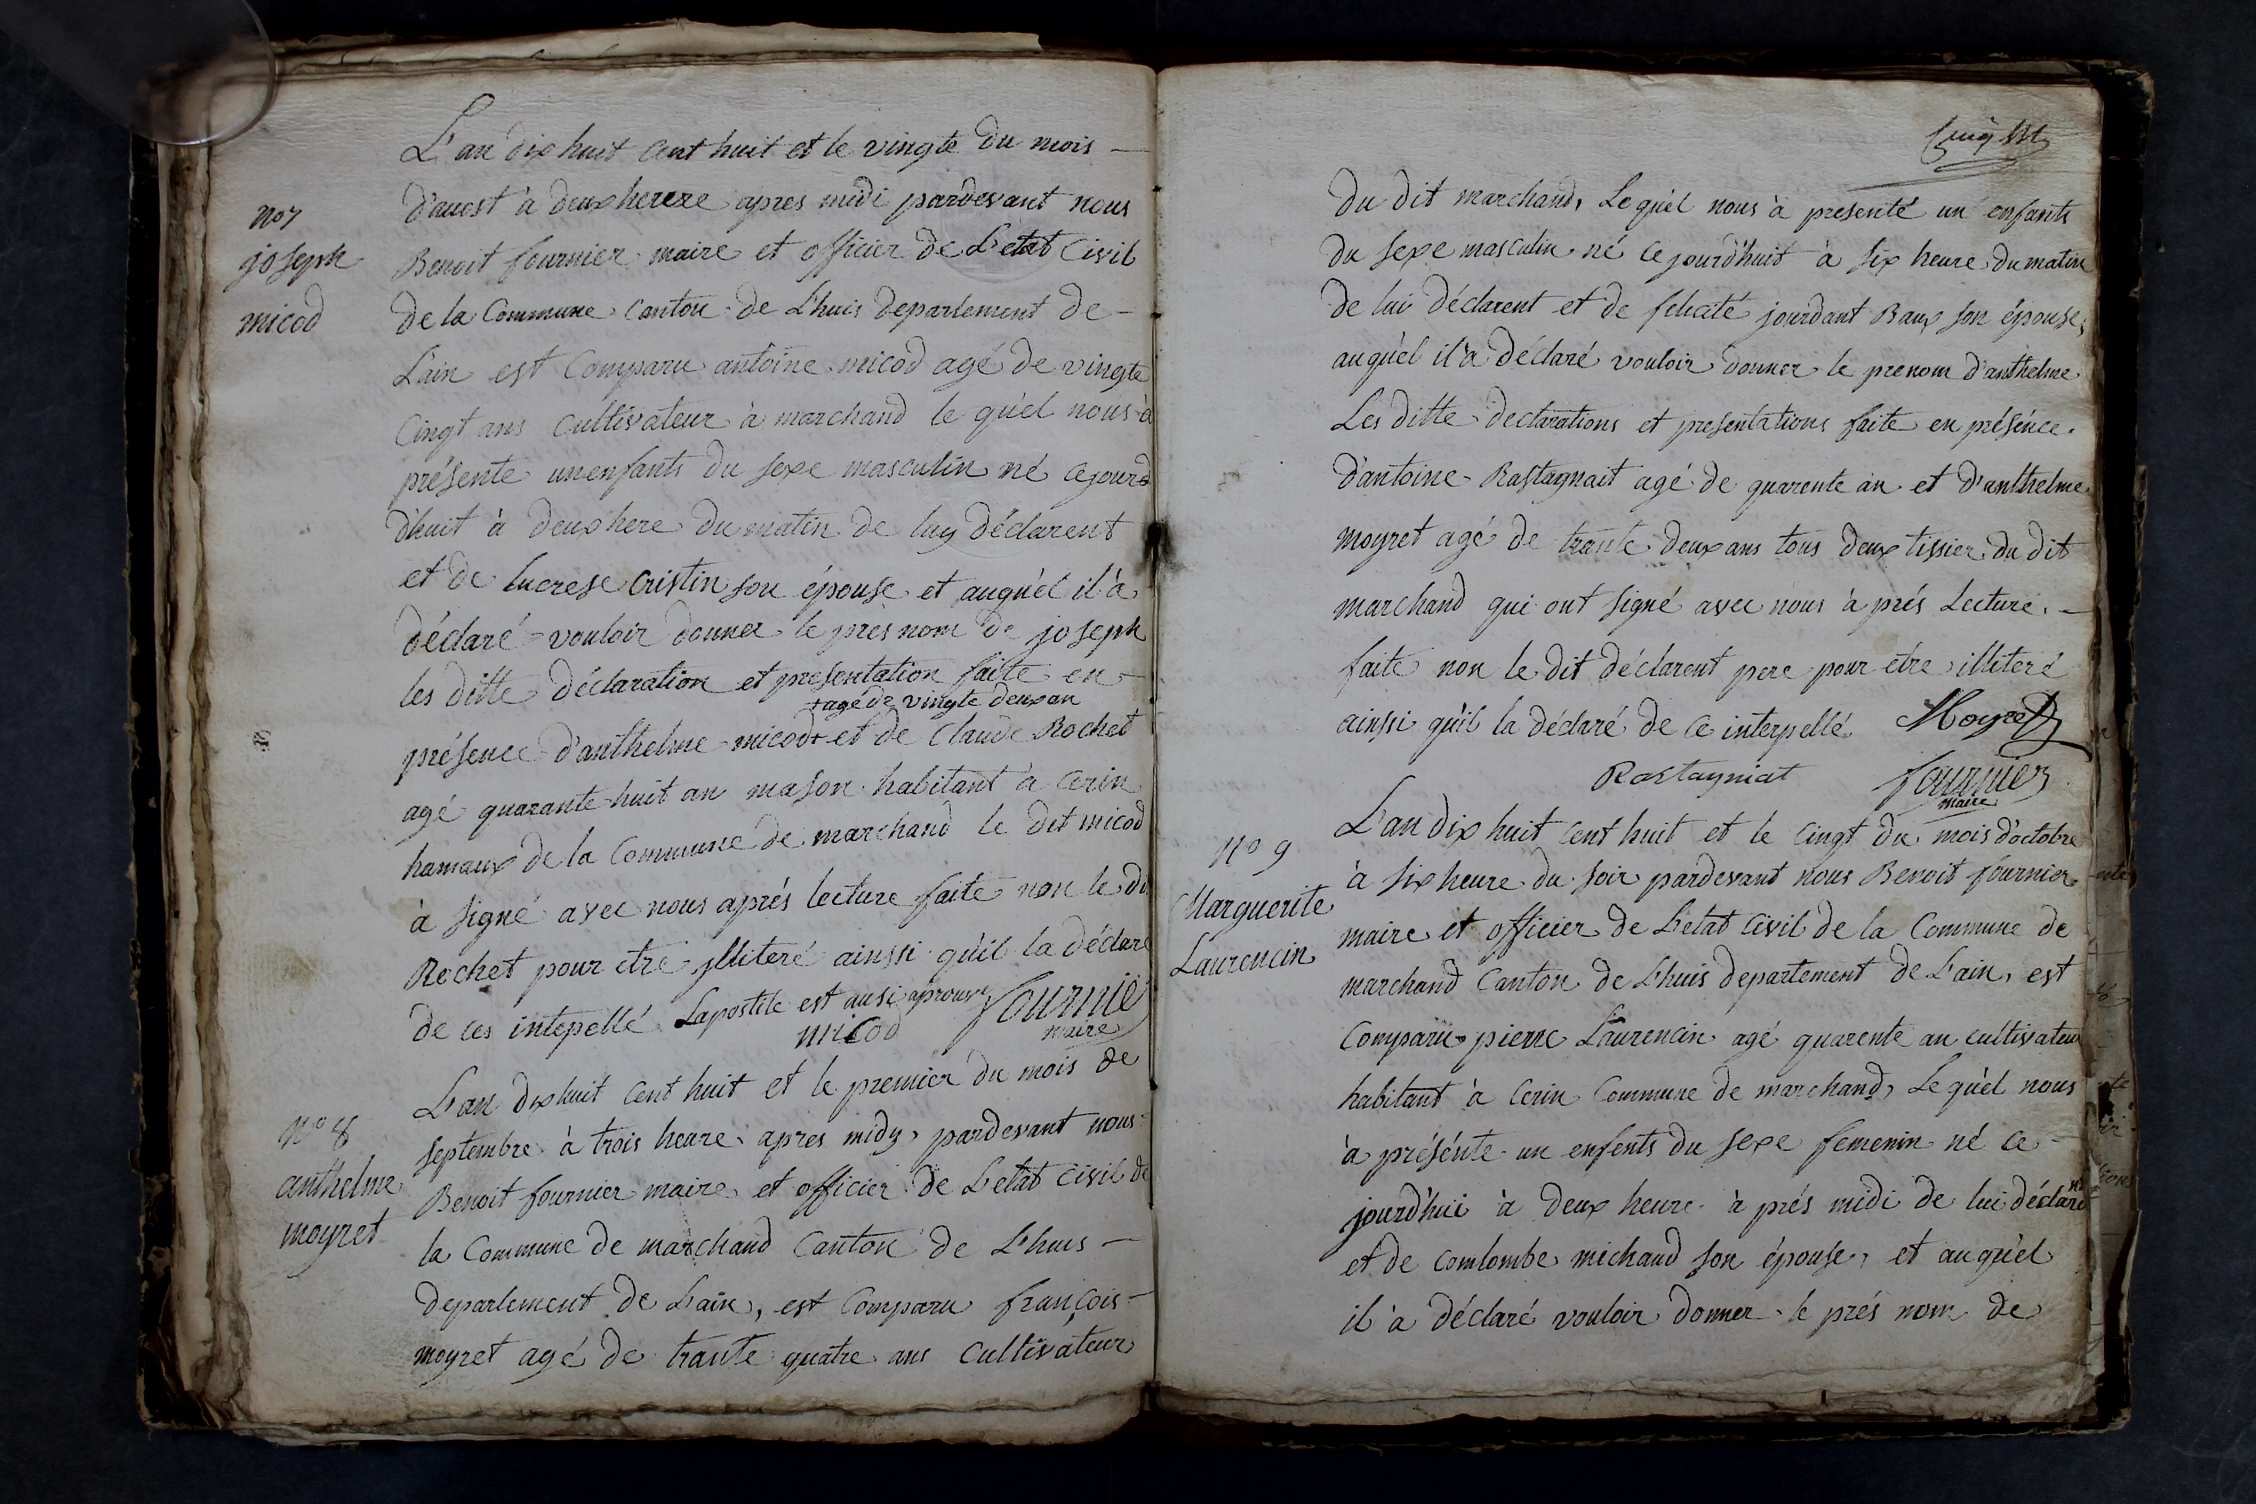 L'an dix huit cent huit et le vingte du mois —
no 7
joseph
micod
d'auost à deux heure apres midi pardevant nous
Benoit fournier maire et officier de L'état Civil
de la Commune Canton de L'huis departement de —
L'ain est Comparu antoine micod agé de vingte
Cinqt ans Cultivateur à marchand le qu'el nous à
présente un enfants du sexe masculin né cejourd
d'huit à deux here du matin de luy déclarent
et de lucrese Cristin son épouse et auqu'el il à
déclaré vouloir donner le pres nom de joseph
les ditte déclaration et presentation faite en —
+ agé de vingte deux an
présence d'anthelme micod + et de Claude Rochet
agé quarante huit an mason habitant à Cerin
hamaux de la Commune de marchand le dit micod
à signé avec nous aprés lecture faite non le di
Rochet pour etre jlliteré ainssi qu'il la déclaré
de ces intepellé Lapostile est ausi aprouvé
micod fournier
maire
No 8
anthelme
moyret
L'an dix huit Cent huit et le premiér du mois de
septembre à trois heure apres midy, pardevant nous
Benoit fournier maire et officier de L'etat Civil de
la Commune de marchand Canton de L'huis —
departement de L'ain, est Comparu françois —
moyret agé de trante quatre ans Cultivateur
du dit marchand, Lequ'el nous à presenté un enfants
du sexe masculin né ce jourd'huit à six heure du matin
de lui déclarent et de felicité jourdant Baux son épouse,
auqu'el il'a déclaré vouloir donner le prenom d'anthelme
Les ditte declarations et presentations faite en présénce
d'antoine Rastagnait agé de quarente an et d'anthelme
moyret agé de trante deux ans tous deux tissier du dit
marchand qui ont signé avec nous à prés Lecture. —
faite non le dit déclarent pere pour etre illiteré
ainssi qu'il la déclaré de ce interpellé Moyret
Rastagniat fournier
maire
No 9
Marguerite
Laurencin
L'an dix huit Cent huit et le Cinqt du mois d'octobre
à six heure du soir pardevant nous Benoit fournier
maire et officier de L'etat Civil de la Commune de
marchand Canton de L'huis departement de L'ain, est
Comparu pierre Laurencin agé quarente an cultivateur
habitant à Cerin Commune de marchand, Lequ'el nous
à présénte un enfents du sexe femenin né ce —
jourd'hui à deux heure à prés midi de lui déclarent
et de comlombe michaud son épouse, et auqu'el
il à déclaré vouloir donner le prés nom de